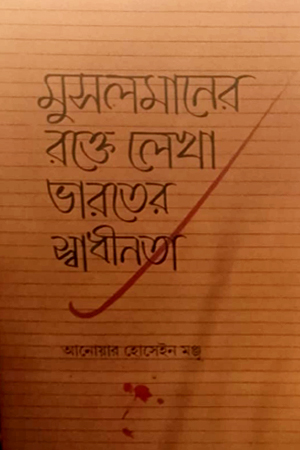 মুসলমানের
রক্তে লেখা
ভারতের
স্বাধীনতা
আনোয়ার হোসেইন মঞ্জু